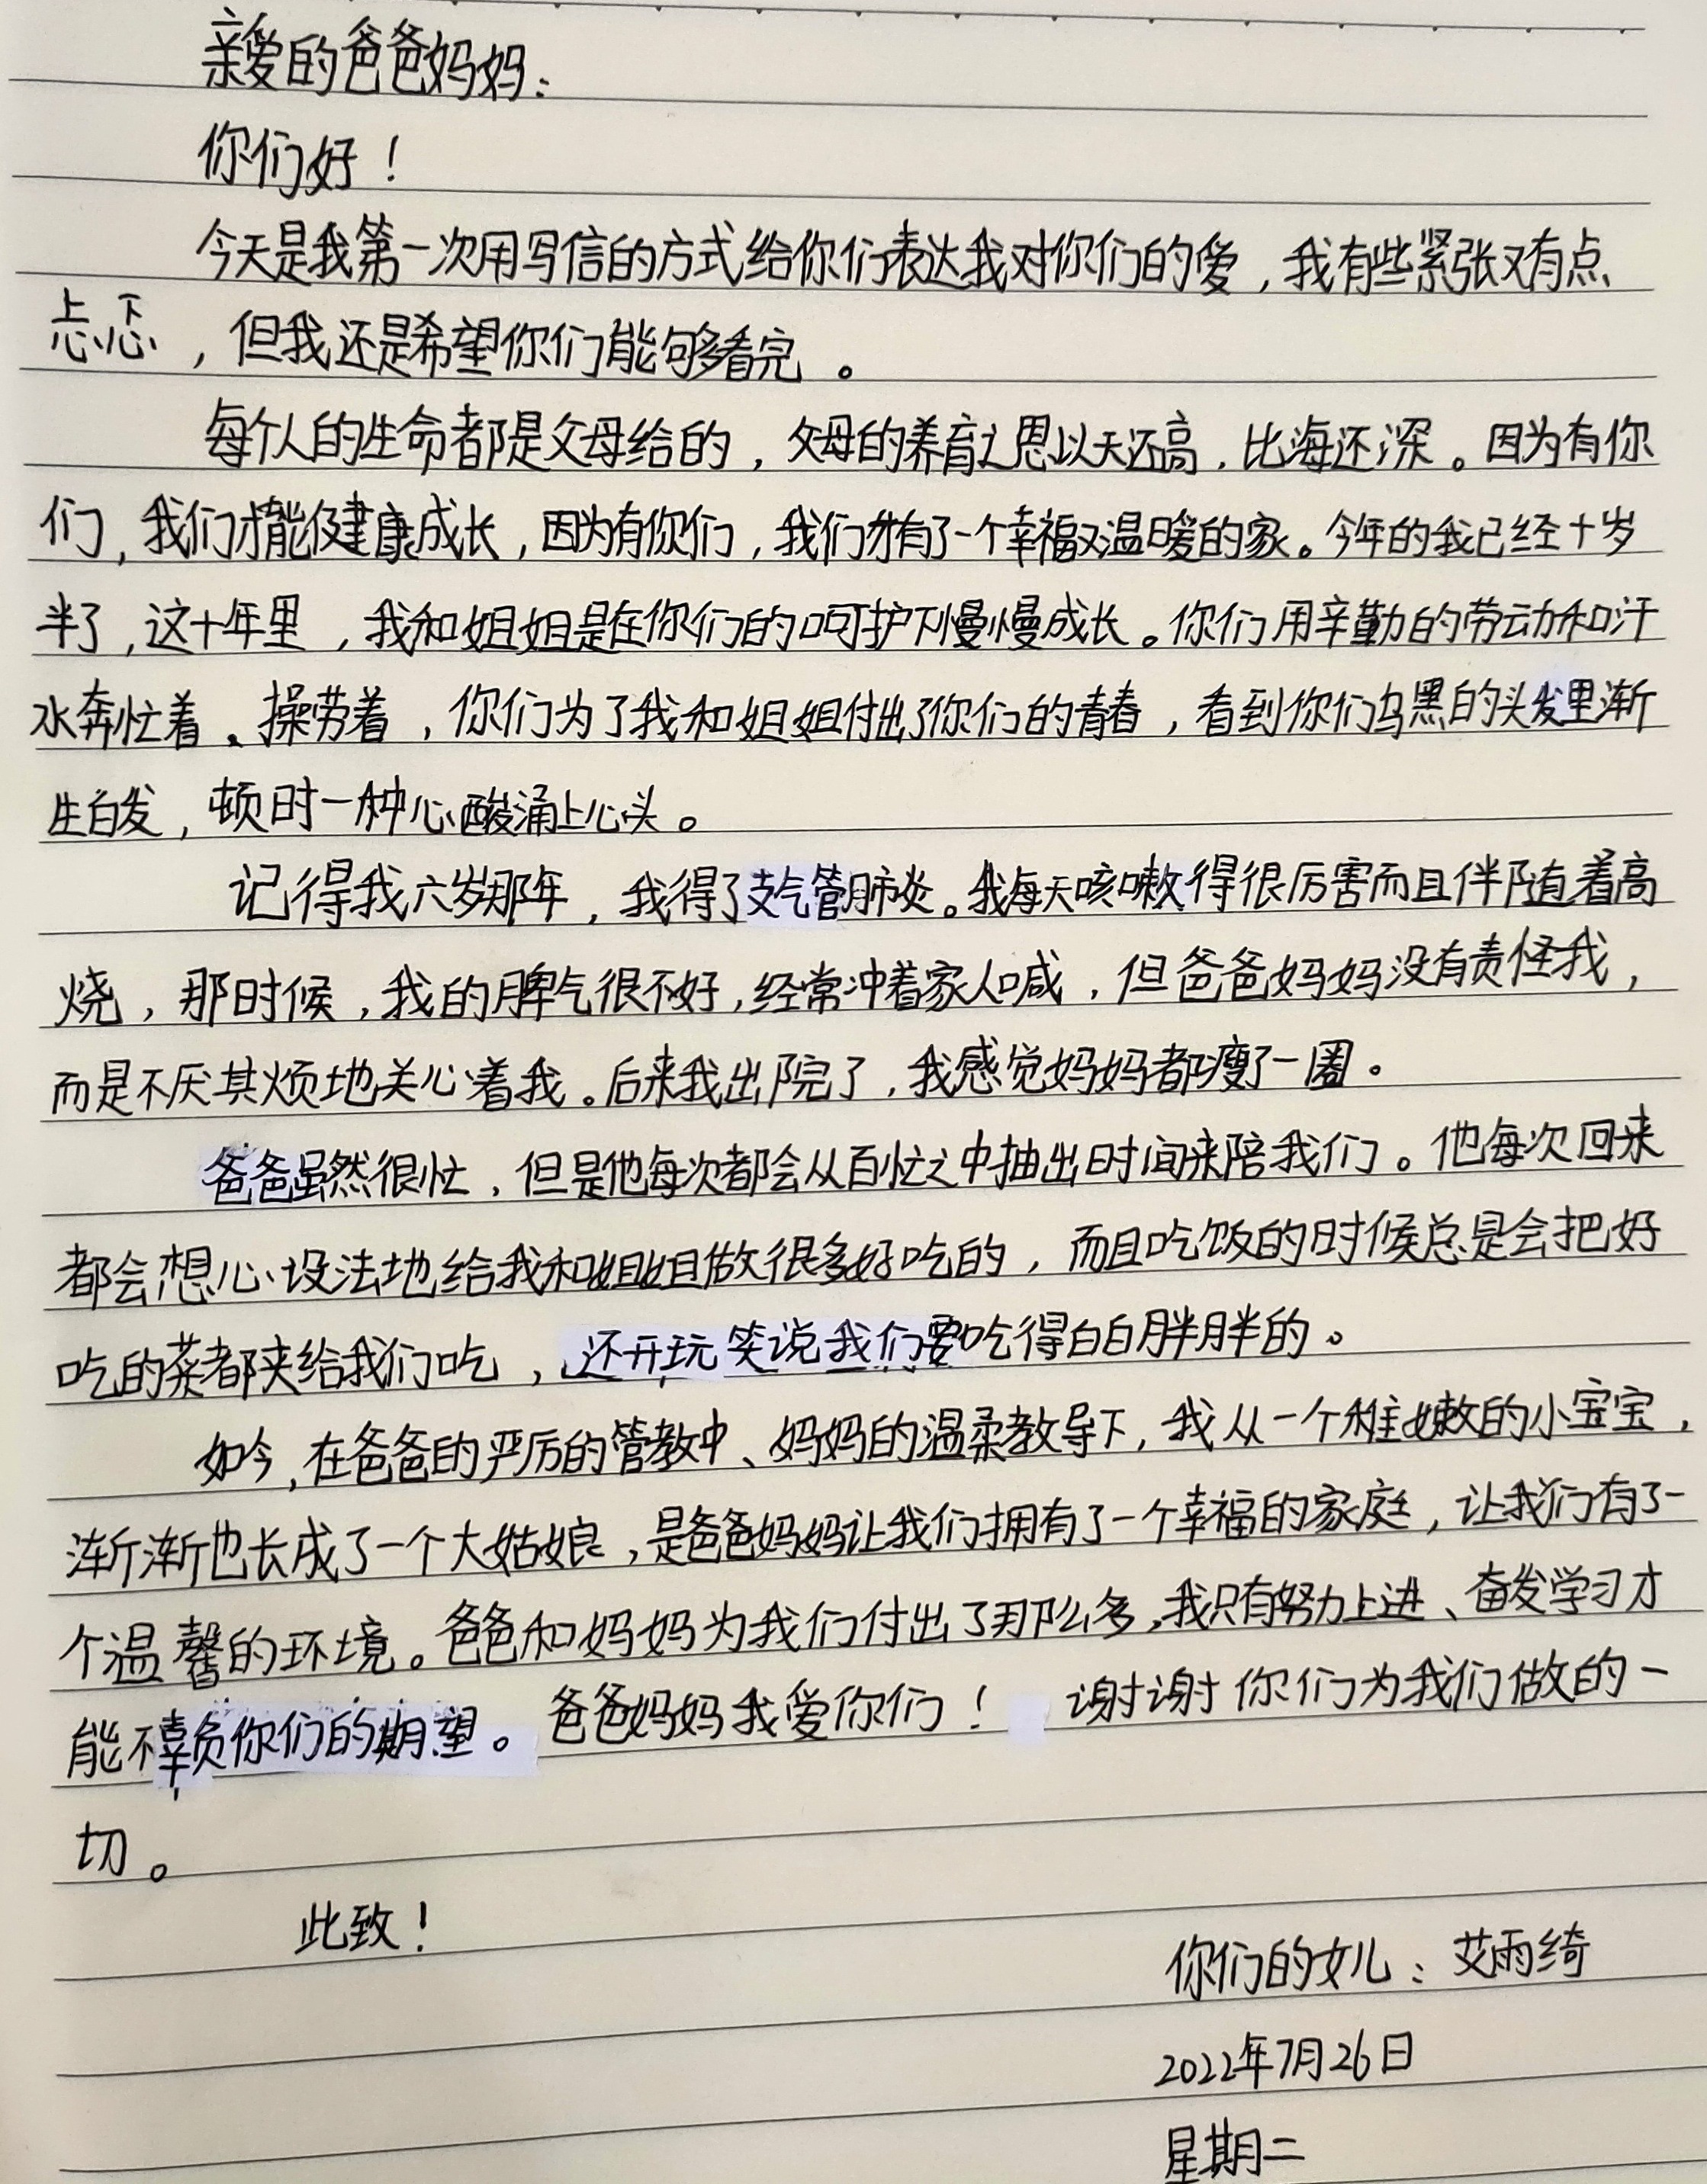 亲爱的爸爸妈妈：
你们好！
今天是我第一次用写信的方式给你们表达我对你们的爱，我有些紧张又有点
忐忑，但我还是希望你们能够看完。
每个人的生命都是父母给的，父母的养育之恩以天还高，比海还深。因为有你
们，我们才能健康成长，因为有你们，我们才有了一个幸福又温暖的家。今年的我已经十岁
半了，这十年里，我和姐姐是在你们的呵护下慢慢成长。你们用辛勤的劳动和汗
水奔忙着、操劳着，你们为了我和姐姐付出了你们的青春，看到你们乌黑的头发里渐
生白发，顿时一种心酸涌上心头。
记得我六岁那年，我得了支气管肺炎。我每天咳嗽得很厉害而且伴随着高
烧，那时候，我的脾气很不好，经常冲着家人喊，但爸爸妈妈没有责怪我，
而是不厌其烦地关心着我。后来我出院了，我感觉妈妈都瘦了一圈。
爸爸虽然很忙，但是他每次都会从百忙之中抽出时间来陪我们。他每次回来
都会想心设法地给我和姐姐做很多好吃的，而且吃饭的时候总是会把好
吃的菜都夹给我们吃，还开玩笑说我们要吃得白白胖胖的。
如今，在爸爸的严厉的管教中、妈妈的温柔教导下，我从一个稚嫩的小宝宝，
渐渐地长成了一个大姑娘，是爸爸妈妈让我们拥有了一个幸福的家庭，让我们有了一
个温馨的环境。爸爸和妈妈为我们付出了那么多，我只有努力上进、奋发学习才
能不辜负你们的期望。爸爸妈妈我爱你们！谢谢你们为我们做的一
切。
此致！
你们的女儿：艾雨绮
2022年7月26日
星期二